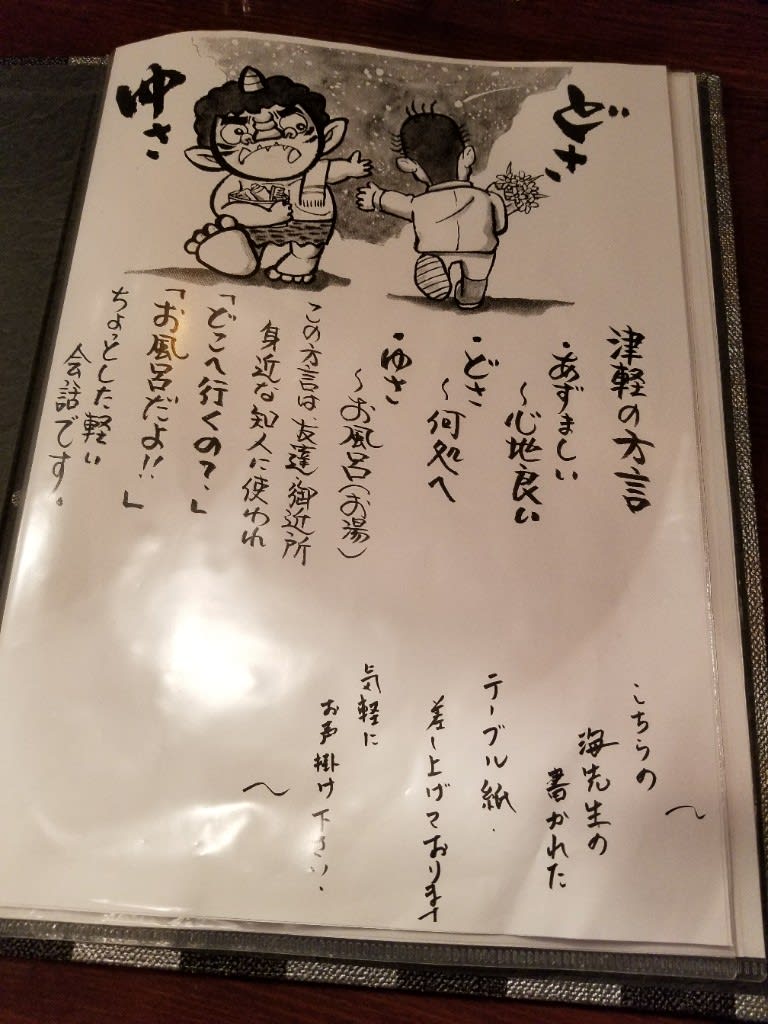 どさ
ゆさ
津軽の方言
・あずましい
～心地良い
・どさ
～何処へ
・ゆさ
～お風呂(お湯)
この方言は友達・御近所
身近な知人に使われ
「どこへ行くの?」
「お風呂だよ!!」
ちょっとした軽い
会話です。
～
こちらの
海先生の
書かれた
テーブル紙.
差し上げております
気軽に
お声掛け下さい.
～